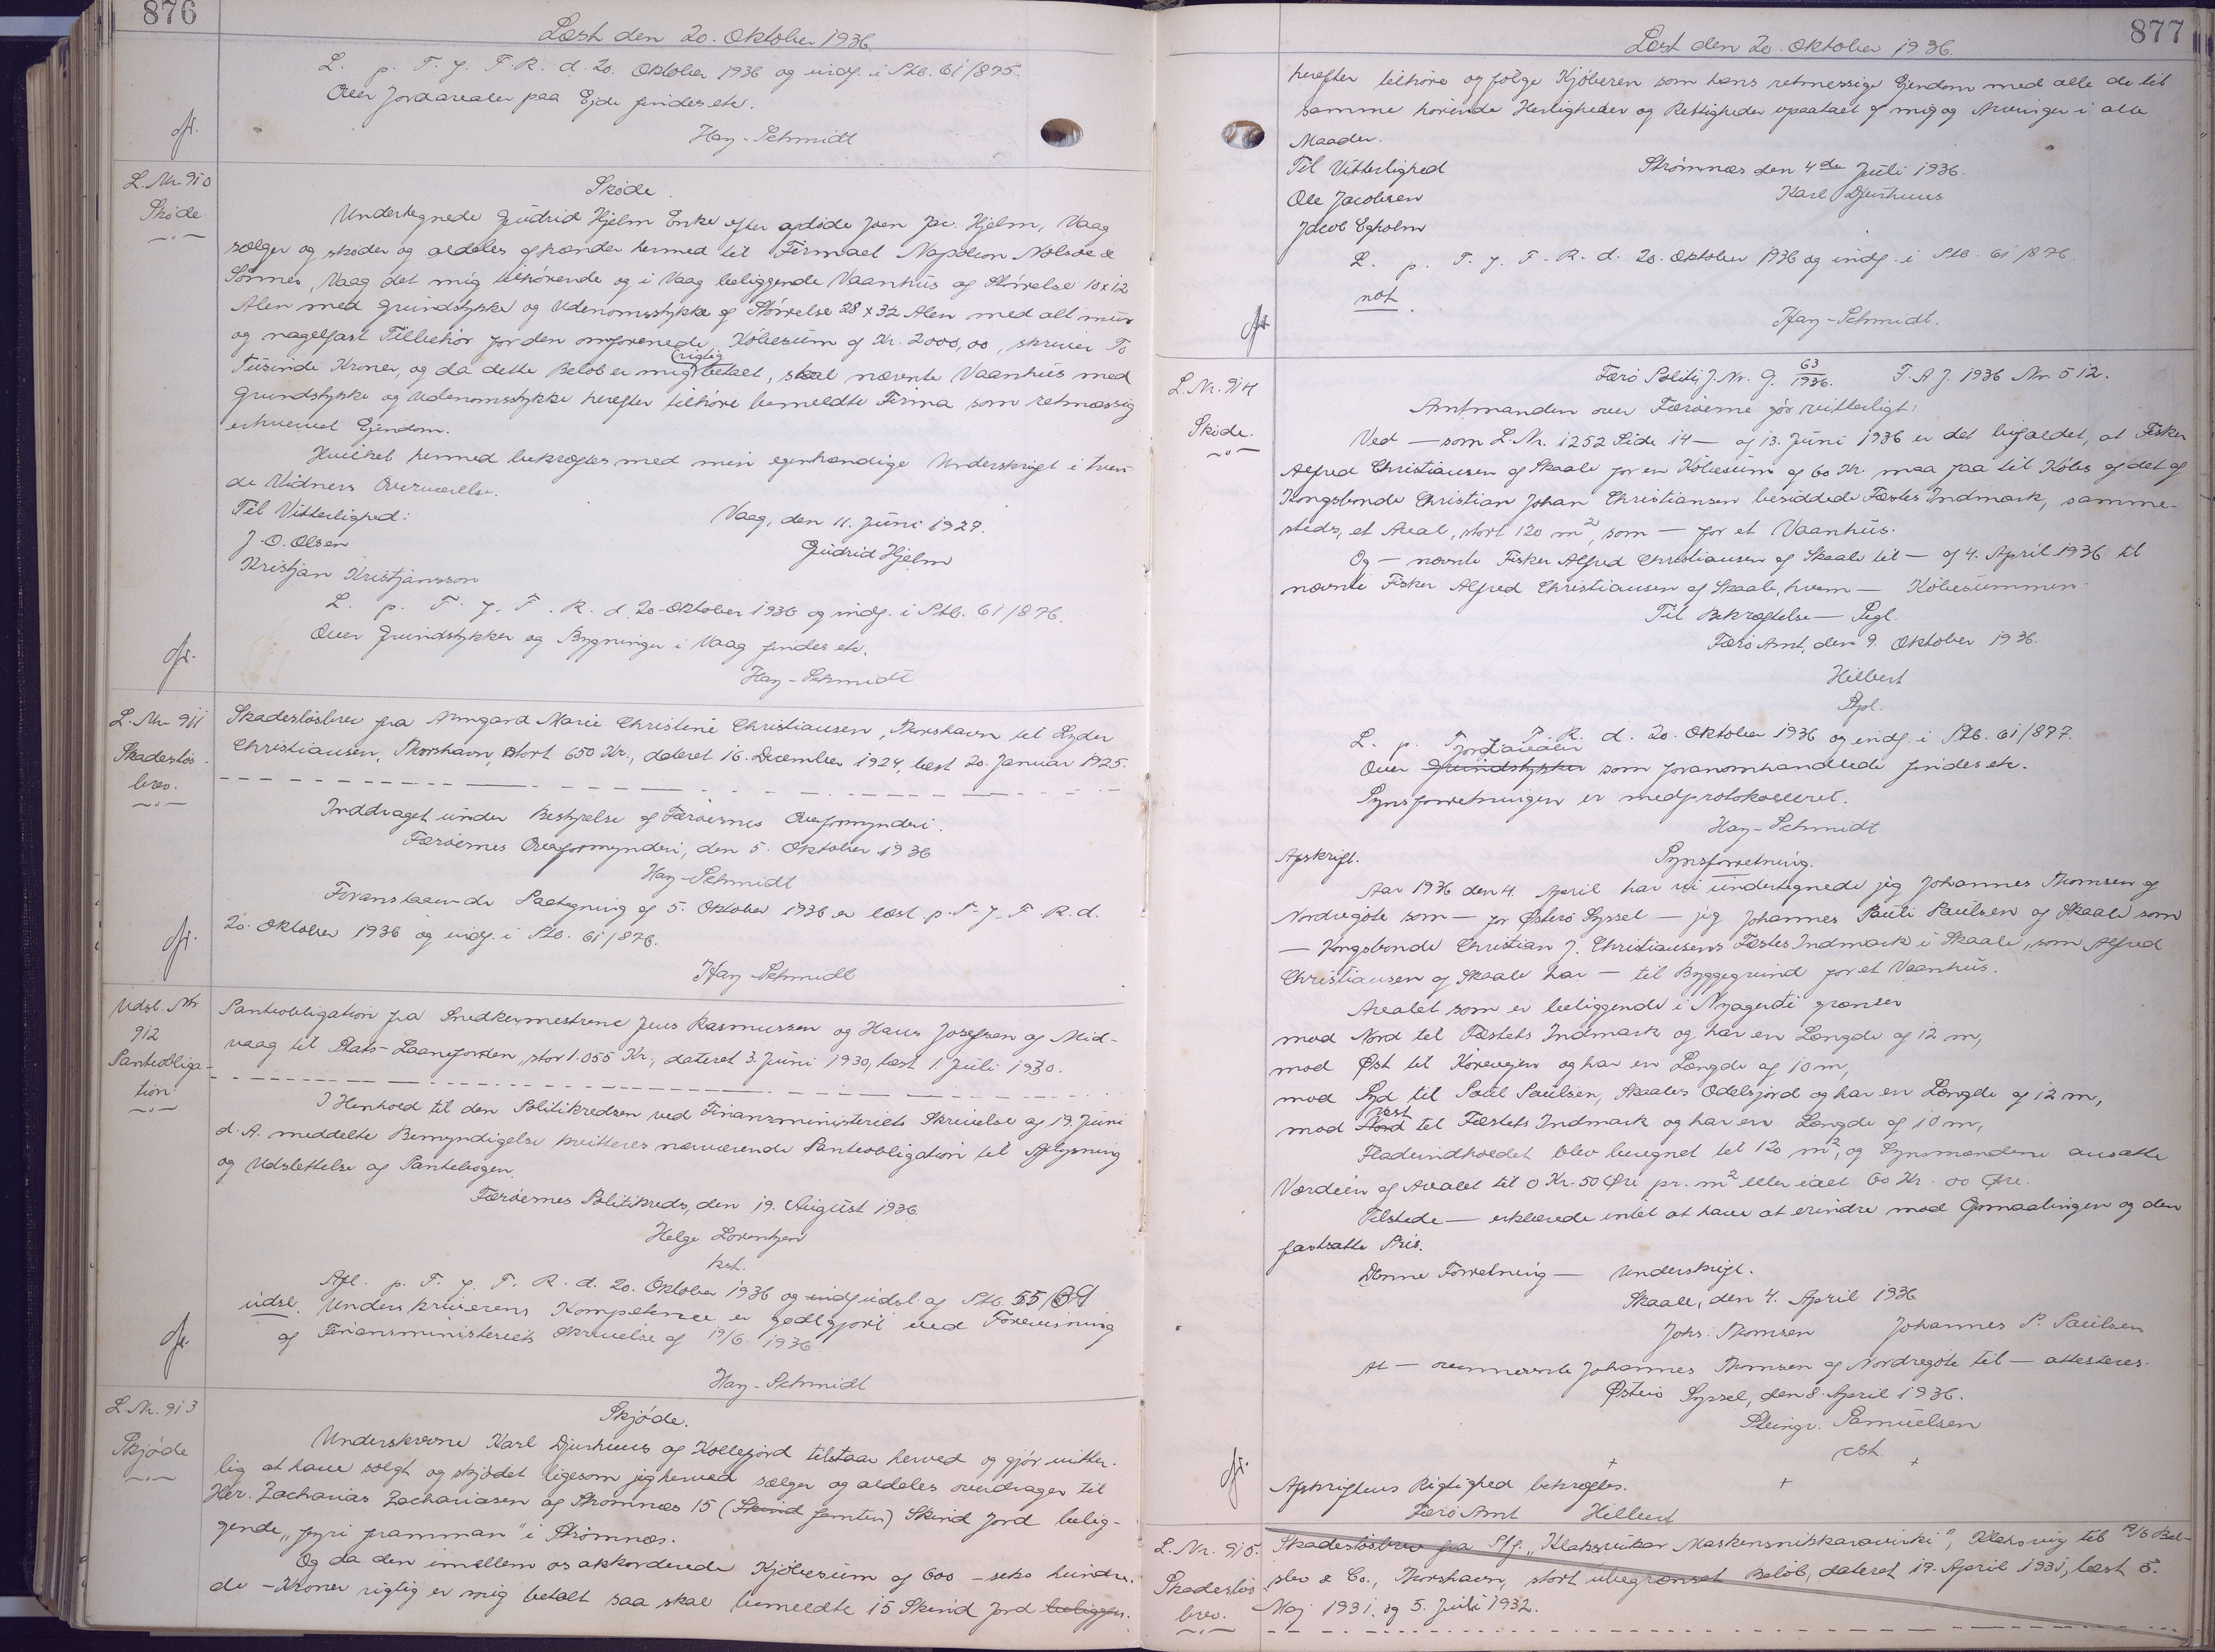 876
Læst den 20. Oktober 1936.
L. p. T. f. F. R. d. 20. Oktober 1936 og indf. i Stb. 61/875.
Over Jordarealer paa Ejde findes etc.
Hay-Schmidt
L. Nr. 910
Skøde
Skøde.
Undertegnede Gudrid Hjelm Enke efter afdøde Joen Jac. Hjelm, Vaag
sælger og skøder og aldeles afhænder hermed til Firmaet Napoleon Nolsøe &
Sønner, Vaag det mig tilhørende og i Vaag beliggende Vaanhus af Størrelse 10 x 12
Alen med Grundstykke og Udenomsstykke af Størrelse 28 x 32 Alen med alt mur
og nagelfast Tilbehør for den omforenede Købesum af Kr. 2000,00, skriver To
rigtig
Tusinde Kroner, og da dette Beløb er mig betalt, skal nævnte Vaanhus med
Grundstykke og Udenomsstykke herefter tilhøre bemeldte Firma som retmæssig
erhvervet Ejendom.
Hvilket hermed bekræftes med min egenhændige Underskrift i tven-
de Vidners Overværelse.
Til Vitterlighed:
Vaag, den 11. Juni 1927.
J. O. Olsen
Gudrid Hjelm
Kristjan Kristjansson
L. p. T. f. F. R. d. 20. Oktober 1936 og indf. i Stb. 61/876.
Over Grundstykker og Bygninger i Vaag findes etc.
Hay-Schmidt
L. Nr. 911
Skadesløs-
brev.
Skadesløsbrev fra Armgard Marie Christene Christiansen, Thorshavn til Lyder
Christiansen, Thorshavn, stort 650 Kr., dateret 16. December 1924, læst 20. Januar 1925.
Inddraget under Bestyrelse af Færøernes Overformynderi.
Færøernes Overformynderi, den 5. Oktober 1936
Hay-Schmidt
Foranstaaende Paategning af 5. Oktober 1936 er læst p. T. f. F. R. d.
20. Oktober 1936 og indf. i Stb. 61/876.
Hay-Schmidt
Udsl. Nr.
912
Panteobliga-
tion
Panteobligation fra Snedkermestrene Jens Rasmussen og Hans Josefsen af Mid-
vaag til Stats-Laanefonden, stor 1.055 Kr., dateret 3. Juni 1930, læst 1. Juli 1930.
I Henhold til den Politikredsen ved Finansministeriets Skrivelse af 19. Juni
d. A. meddelte Bemyndigelse kvitteres nærværende Panteobligation til Aflysning
og Udslettelse af Pantebogen.
Færøernes Politikreds, den 19. August 1936.
Helge Lorentzen
kst.
Afl. p. T. f. F. R. d. 20. Oktober 1936 og udsl. af Stb. 55/
udsl. Underskriverens Kompetence er godtgjort ved Forevisning
af Finansministeriets Skrivelse af 19/6 1936
Hay-Schmidt
L. Nr. 913
Skjøde
Skjøde.
Underskrevne Karl Djurhuus af Kollefjord tilstaar herved og gjør vitter-
lig at have solgt og skjødet ligesom jeg herved sælger og aldeles overdrager til
Her. Zacharias Zachariasen af Strømnæs 15 (Skind femten) Skind Jord belig-
gende "fyri framman" i Strømnæs.
Og da den imellem os akkorderede Kjøbesum af 600 - seks hundre-
de - Kroner rigtig er mig betalt saa skal bemeldte 15 Skind Jord beliggen-
877
Læst den 20. Oktober 1936.
herefter tilhøre og følge Kjøberen som hans retmessige Ejendom med alle de til
samme hørende Herligheder og Rettigheder upaatalt af mig og Arvinger i alle
Maader.
Til Vitterlighed
Strømnæs den 4de Juli 1936.
Ole Jacobsen
Karl Djurhuus
Jacob Egholm
L. p. T. f. F. R. d. 20. Oktober 1936 og indf. i Stb. 61/876.
not.
Hay-Schmidt.
L. Nr. 914
Skøde.
Færø Politi J. Nr. G. 63/1936. F. A. J. 1936 Nr. 512.
Amtmanden over Færøerne gør vitterligt:
Ved — som L. Nr. 1252 Side 14 — af 13. Juni 1936 er det bifaldet, at Fisker
Alfred Christiansen af Skaale for en Købesum af 60 Kr. maa faa til Købs af det af
Kongsbonde Christian Johan Christiansen besiddede Fæstes Indmark, samme-
steds, et Areal, stort 120 m2, som — for et Vaanhus.
Og — nævnte Fisker Alfred Christiansen af Skaale til — af 4. April 1936 til
nævnte Fisker Alfred Christiansen af Skaale, hvem — Købesummen
Til Bekræftelse — Segl.
Færø Amt, den 9. Oktober 1936.
Hilbert
L. p. T. f. F. R. d. 20. Oktober 1936 og indf. i Stb. 61/877.
Jordarealer
Over Grundstykker som foranomhandlede findes etc.
Synsforretningen er medprotokolleret.
Hay-Schmidt
Afskrift.
Synsforretning.
Aar 1936 den 4. April har vi undertegnede jeg Johannes Thomsen af
Nordregøte som — for Østerø Syssel — jeg Johannes Pauli Paulsen af Skaale som
— Kongsbonde Christian J. Christiansens Fæstes Indmark i Skaale, som Alfred
Christiansen af Skaale har — til Byggegrund for et Vaanhus.
Arealet som er beliggende i Nyagerdi grænser
mod Nord til Fæstets Indmark og har en Længde af 12 m,
mod Øst til Kørevejen og har en Længde af 10 m,
mod Syd til Poul Paulsen, Skaales Odelsjord og har en Længde af 12 m,
vest
mod Nord til Fæstets Indmark og har en Længde af 10 m,
Fladeindholdet blev beregnet til 120 m2, og Synsmændene ansatte
Værdien af Arealet til 0 Kr. 50 Øre pr. m2 eller ialt 60 Kr. 00 Øre.
Tilstede — erklærede intet at have at erindre mod Opmaalingen og den
fastsatte Pris.
Denne Forretning — Underskrift.
Skaale, den 4. April 1936.
Johs. Thomsen Johannes P. Paulsen
At — ovennævnte Johannes Thomsen af Nordregøte til — attesteres.
Østerø Syssel, den 8. April 1936.
Steingr. Samuelsen
cst.
Afskriftens Rigtighed bekræftes.
Færø Amt Hilbert
L. Nr. 915.
Skadesløs-
brev.
Skadesløsbrev fra P/f. "Klaksvikar Maskinsmikkaravirki", Klaksvig til A/S Bal-
slev & Co., Thorshavn, stort ubegrænset Beløb, dateret 17. April 1931, læst 5.
Maj 1931 og 5. Juli 1932.